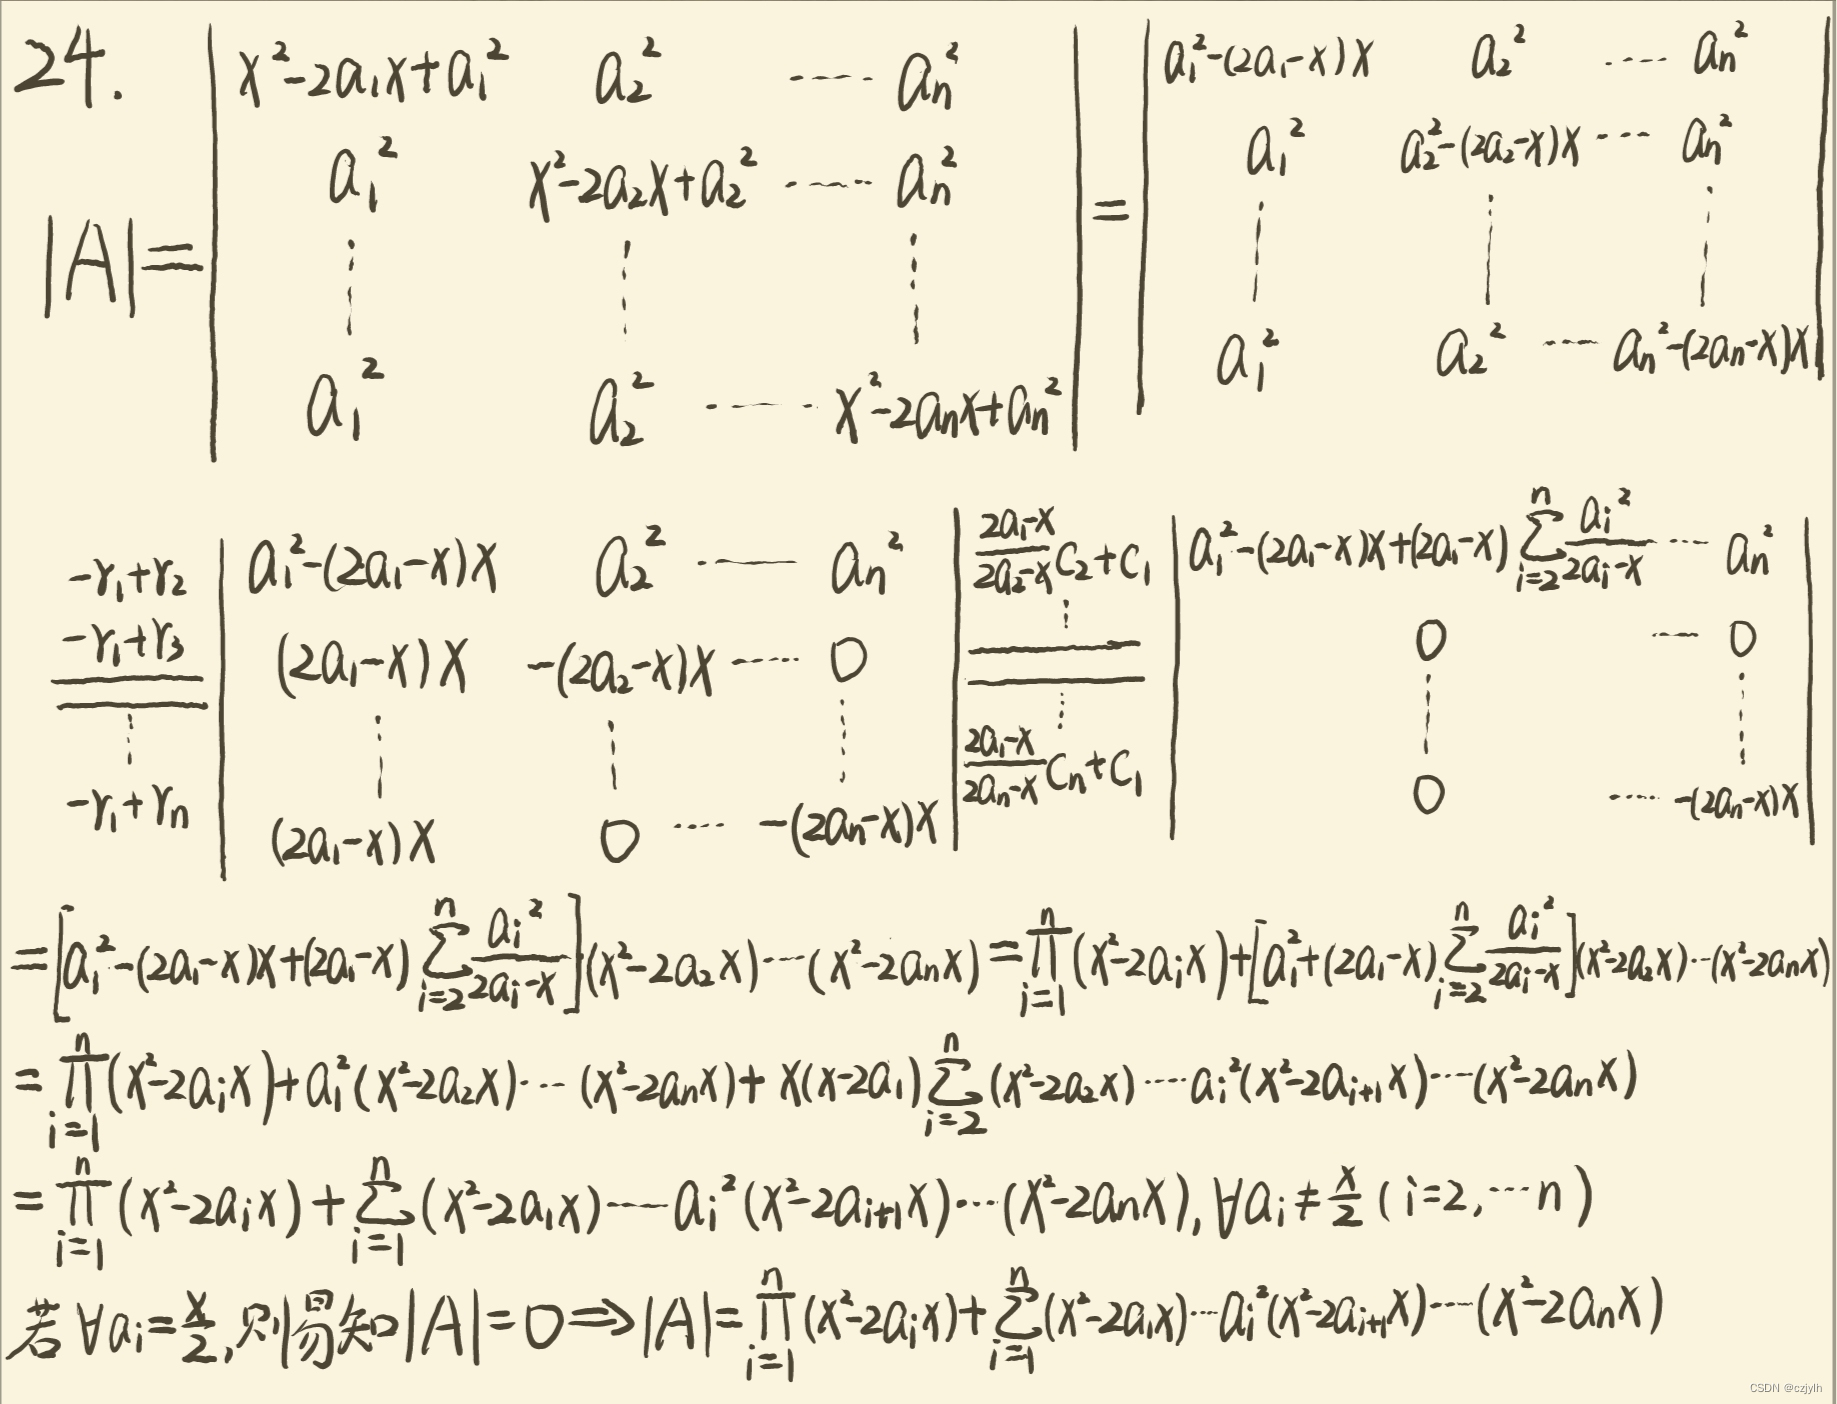 24.
|A| = | x²-2a₁x+a₁² a₂² ······ aₙ² | = | a₁²-(2a₁-x)x a₂² ······ aₙ² |
| a₁² x²-2a₂x+a₂² ······ aₙ² | | a₁² a₂²-(2a₂-x)x ··· aₙ² |
| ⋮ ⋮ ⋮ | | ⋮ ⋮ ⋮ |
| a₁² a₂² ······ x²-2aₙx+aₙ² | | a₁² a₂² ······ aₙ²-(2aₙ-x)x |
-r₁+r₂ | a₁²-(2a₁-x)x a₂² ······ aₙ² | (2a₁-x)/(2a₂-x) C₂+C₁ | a₁²-(2a₁-x)x+(2a₁-x) ∑_{i=2}^{n} aᵢ²/(2aᵢ-x) ······ aₙ² |
-r₁+r₃ | (2a₁-x)x -(2a₂-x)x ······ 0 | ⋮ | 0 ······ 0 |
⋮ | ⋮ ⋮ ⋮ | ⋮ | ⋮ ⋮ |
-r₁+rₙ | (2a₁-x)x 0 ······ -(2aₙ-x)x | (2a₁-x)/(2aₙ-x) Cₙ+C₁ | 0 ······ -(2aₙ-x)x |
= [a₁²-(2a₁-x)x+(2a₁-x) ∑_{i=2}^{n} aᵢ²/(2aᵢ-x)](x²-2a₂x)···(x²-2aₙx) = ∏_{i=1}^{n} (x²-2aᵢx)+[a₁²+(2a₁-x) ∑_{i=2}^{n} aᵢ²/(2aᵢ-x)](x²-2a₂x)···(x²-2aₙx)
= ∏_{i=1}^{n} (x²-2aᵢx)+a₁²(x²-2a₂x)···(x²-2aₙx)+x(x-2a₁) ∑_{i=2}^{n} (x²-2a₂x)····aᵢ²(x²-2aᵢ₊₁x)····(x²-2aₙx)
= ∏_{i=1}^{n} (x²-2aᵢx)+∑_{i=1}^{n} (x²-2a₁x)·····aᵢ²(x²-2aᵢ₊₁x)···(x²-2aₙx), ∀aᵢ≠x/2 (i=2,···n)
若∀aᵢ=x/2,则易知|A|=0⇒|A|=∏_{i=1}^{n} (x²-2aᵢx)+∑_{i=1}^{n} (x²-2a₁x)···aᵢ²(x²-2aᵢ₊₁x)····(x²-2aₙx)
CSDN @czjylh